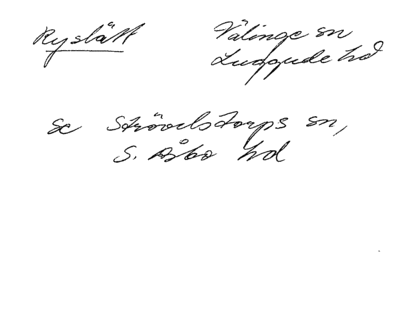 Ryslätt
Välinge sn
Luggude hd
se Strövelstorps sn,
S. Åsbo hd